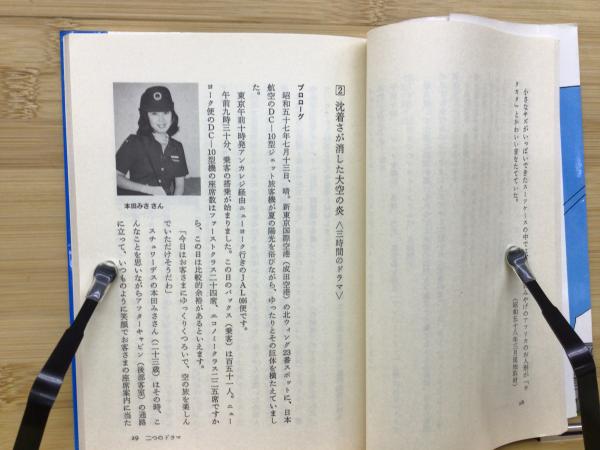 小さなキズがいっぱいできたスーツケースの中で
タカタ」とかわいい音をたてていた。
28
2 沈着さが消した大空の炎 〈三時間のドラマ〉
プロローグ
昭和五十七年七月十三日、晴。新東京国際空港（成田空港）の北ウィング23番スポットに、日本
航空のDC―10型ジェット旅客機が夏の陽光を浴びながら、ゆったりとその巨体を横たえていまし
た。
東京午前十時発アンカレジ経由ニューヨーク行きのJAL006便です。
午前九時三十分、乗客の搭乗が始まりました。この日のパックス（乗客）は百五十一人。ニュー
ヨーク便のDC―10型機の座席数はファーストクラス二十四席、エコノミークラス二二五席ですか
ら、この日は比較的余裕があるといえます。
「今日はお客さまにゆっくりくつろいで、空の旅を楽しん
でいただけそうだわ」
スチュワーデスの本田みささん（二十三歳）はその時、こ
んなことを思いながらアフターキャビン（後部客室）の通路
に立って、いつものように笑顔でお客さまの座席案内に当た
本田みささん
29 二つのドラマ